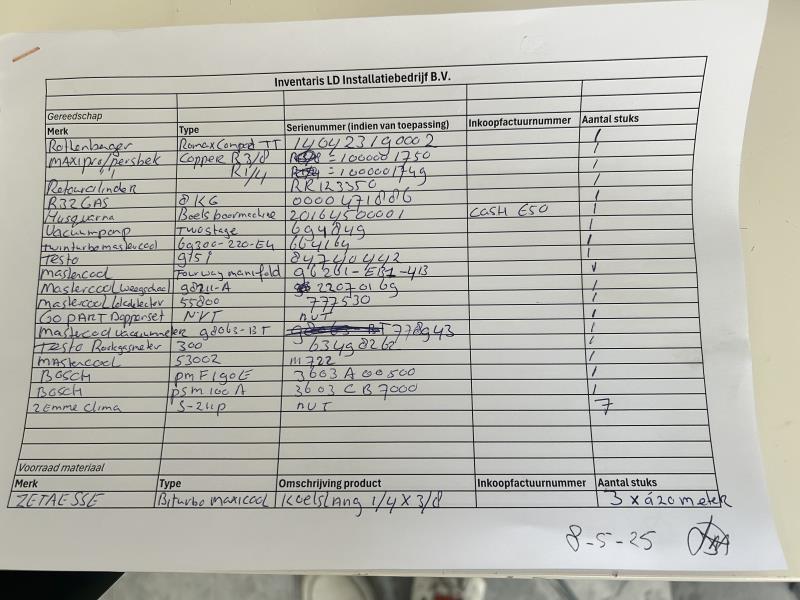 Inventaris LD Installatiebedrijf B.V.
Gereedschap
Merk Type Serienummer (indien van toepassing) Inkoopfactuurnummer Aantal stuks
Rothenberger Romax Compact TT 140423190002 1
MAXIpro/persbek Copper R 3/8 = 1000001750 1
" R 1/4 = 1000001749 1
Retourcilinder RR123350 1
R32 GAS 8 KG 0000471886 1
Husquarna Boels boormachine 20164500001 CASH €50 1
Vacuumpomp Twostage 694849 1
twinturbomastercool 69300-220-E4 664164 1
Testo 9151 84740442 1
Mastercool Fourway manifold 96261-EB1-4B 1
Mastercool weegschaal 98211-A 22070169 1
Mastercool lekdetector 55800 777530 1
GO PART Dopperset NVT NVT 1
Mastercool vacuummeter 98063-BT 778943 1
Testo Rookgasmeter 300 63498262 1
MASTERCOOL 53002 M722 1
BOSCH PMF190E 3603A00500 1
BOSCH PSM100A 3603CB7000 1
Zemme clima S-211P NVT 7
Voorraad materiaal
Merk Type Omschrijving product Inkoopfactuurnummer Aantal stuks
ZETAESSE Biturbo maxicool Koelslang 1/4 X 3/8 3 x á 20 meter
8-5-25